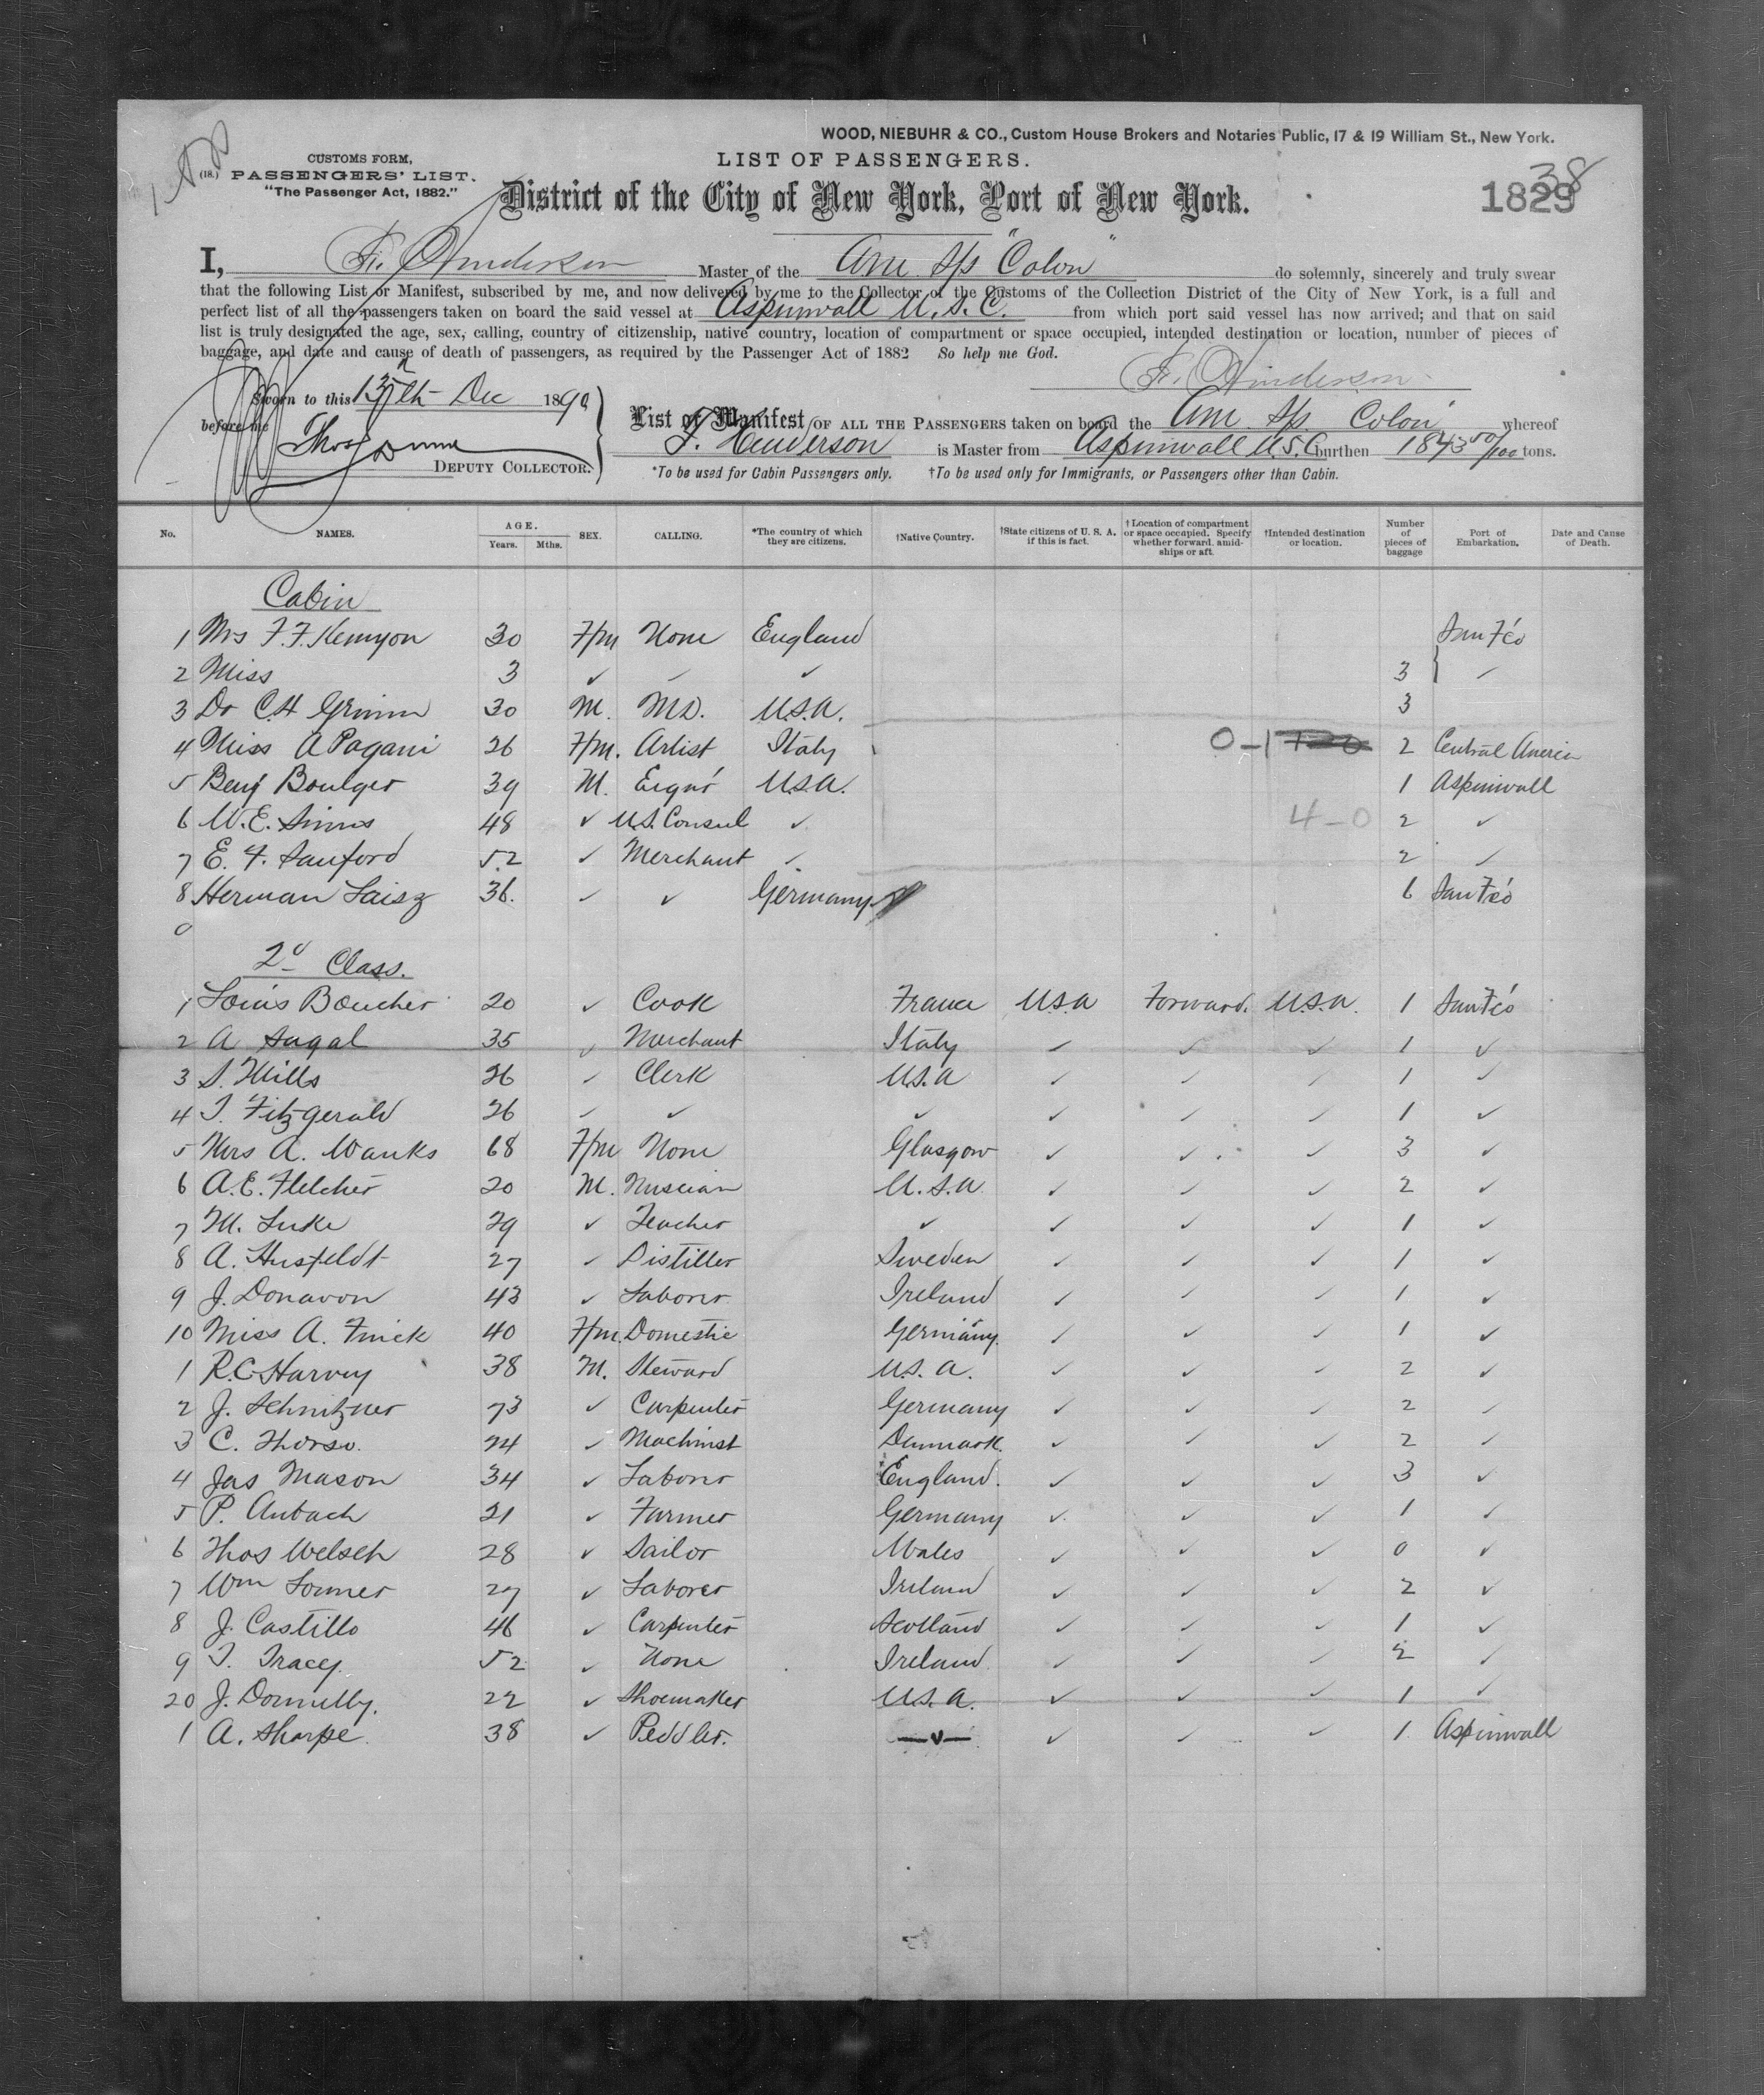 WOOD, NIEBUHR & CO., Custom House Brokers and Notaries Public, 17 & 19 William St., New York.
CUSTOMS FORM, LIST OF PASSENGERS.
(18.) PASSENGERS' LIST. 38
"The Passenger Act, 1882." District of the City of New York, Port of New York. 1829
I, F. Henderson Master of the Am S/s "Colon" do solemnly, sincerely and truly swear
that the following List or Manifest, subscribed by me, and now delivered by me to the Collector of the Customs of the Collection District of the City of New York, is a full and
perfect list of all the passengers taken on board the said vessel at Aspinwall U.S.C. from which port said vessel has now arrived; and that on said
list is truly designated the age, sex, calling, country of citizenship, native country, location of compartment or space occupied, intended destination or location, number of pieces of
baggage, and date and cause of death of passengers, as required by the Passenger Act of 1882 So help me God.
F. Henderson
Sworn to this 15th Dec 1890
before me
List or Manifest OF ALL THE PASSENGERS taken on board the Am S/s Colon whereof
F. Henderson is Master from Aspinwall U.S.C. burthen tons.
DEPUTY COLLECTOR.
*To be used for Cabin Passengers only. †To be used only for Immigrants, or Passengers other than Cabin.
No. NAMES. AGE. Years. Mths. SEX. CALLING. *The country of which they are citizens. †Native Country. †State citizens of U. S. A. if this is fact. †Location of compartment or space occupied. Specify whether forward, amidships or aft. †Intended destination or location. Number of pieces of baggage Port of Embarkation. Date and Cause of Death.
Cabin
1 Mrs F.F. Kennyon 30 F/m None England San F'co
2 Miss 3 ✓ ✓ ✓ 3 ✓
3 Dr C.H Grimm 30 M. MD. U.S.A. 3
4 Miss A Pagani 26 F/m. Artist Italy 0-1 2 Central America
5 Benj Boulger 39 M. Eng'r U.S.A. 1 Aspinwall
6 W.E. Simms 48 ✓ U.S. Consul ✓ 4-0 2 ✓
7 E. F. Sanford 52 ✓ Merchant ✓ 2 ✓
8 Herman Laisz 36. ✓ ✓ Germany 6 San F'co
2d Class.
1 Louis Boucher 20 ✓ Cook France USA Forward. U.S.A. 1 San F'co
2 A Sagal 35 ✓ Merchant Italy ✓ ✓ ✓ 1 ✓
3 S. Mills 26 ✓ Clerk U.S.A ✓ ✓ ✓ 1 ✓
4 T. Fitzgerald 26 ✓ ✓ ✓ ✓ ✓ ✓ 1 ✓
5 Mrs A. Wanks 68 F/m None Glasgow ✓ ✓ ✓ 3 ✓
6 A.E. Fletcher 20 M. Musician U.S.A. ✓ ✓ ✓ 2 ✓
7 M. Luke 29 ✓ Teacher ✓ ✓ ✓ ✓ 1 ✓
8 A. Husfeldt 27 ✓ Distiller Sweden ✓ ✓ ✓ 1 ✓
9 J. Donavon 43 ✓ Laborer Ireland ✓ ✓ ✓ 1 ✓
10 Miss A. Finick 40 F/m. Domestic Germany. ✓ ✓ ✓ 1 ✓
1 R.C. Harvey 38 M. Steward U.S.A. ✓ ✓ ✓ 2 ✓
2 J. Schnitzner 73 ✓ Carpenter Germany ✓ ✓ ✓ 2 ✓
3 C. Thorso. 24 ✓ Machinst Denmark. ✓ ✓ ✓ 2 ✓
4 Jas Mason 34 ✓ Laborer England. ✓ ✓ ✓ 3 ✓
5 P. Anbach 21 ✓ Farmer Germany ✓ ✓ ✓ 1 ✓
6 Thos Welsch 28 ✓ Sailor Wales ✓ ✓ ✓ 0 ✓
7 Wm Lonner 27 ✓ Laborer Ireland ✓ ✓ ✓ 2 ✓
8 J. Castillo 46 ✓ Carpenter Scotland ✓ ✓ ✓ 1 ✓
9 T. Tracey. 52 ✓ None Ireland ✓ ✓ ✓ 2 ✓
20 J. Donnelly. 22 ✓ Shoemaker U.S.A. ✓ ✓ ✓ 1 ✓
1 A. Sharpe. 38 ✓ Peddler. —✓— ✓ ✓ ✓ 1 Aspinwall